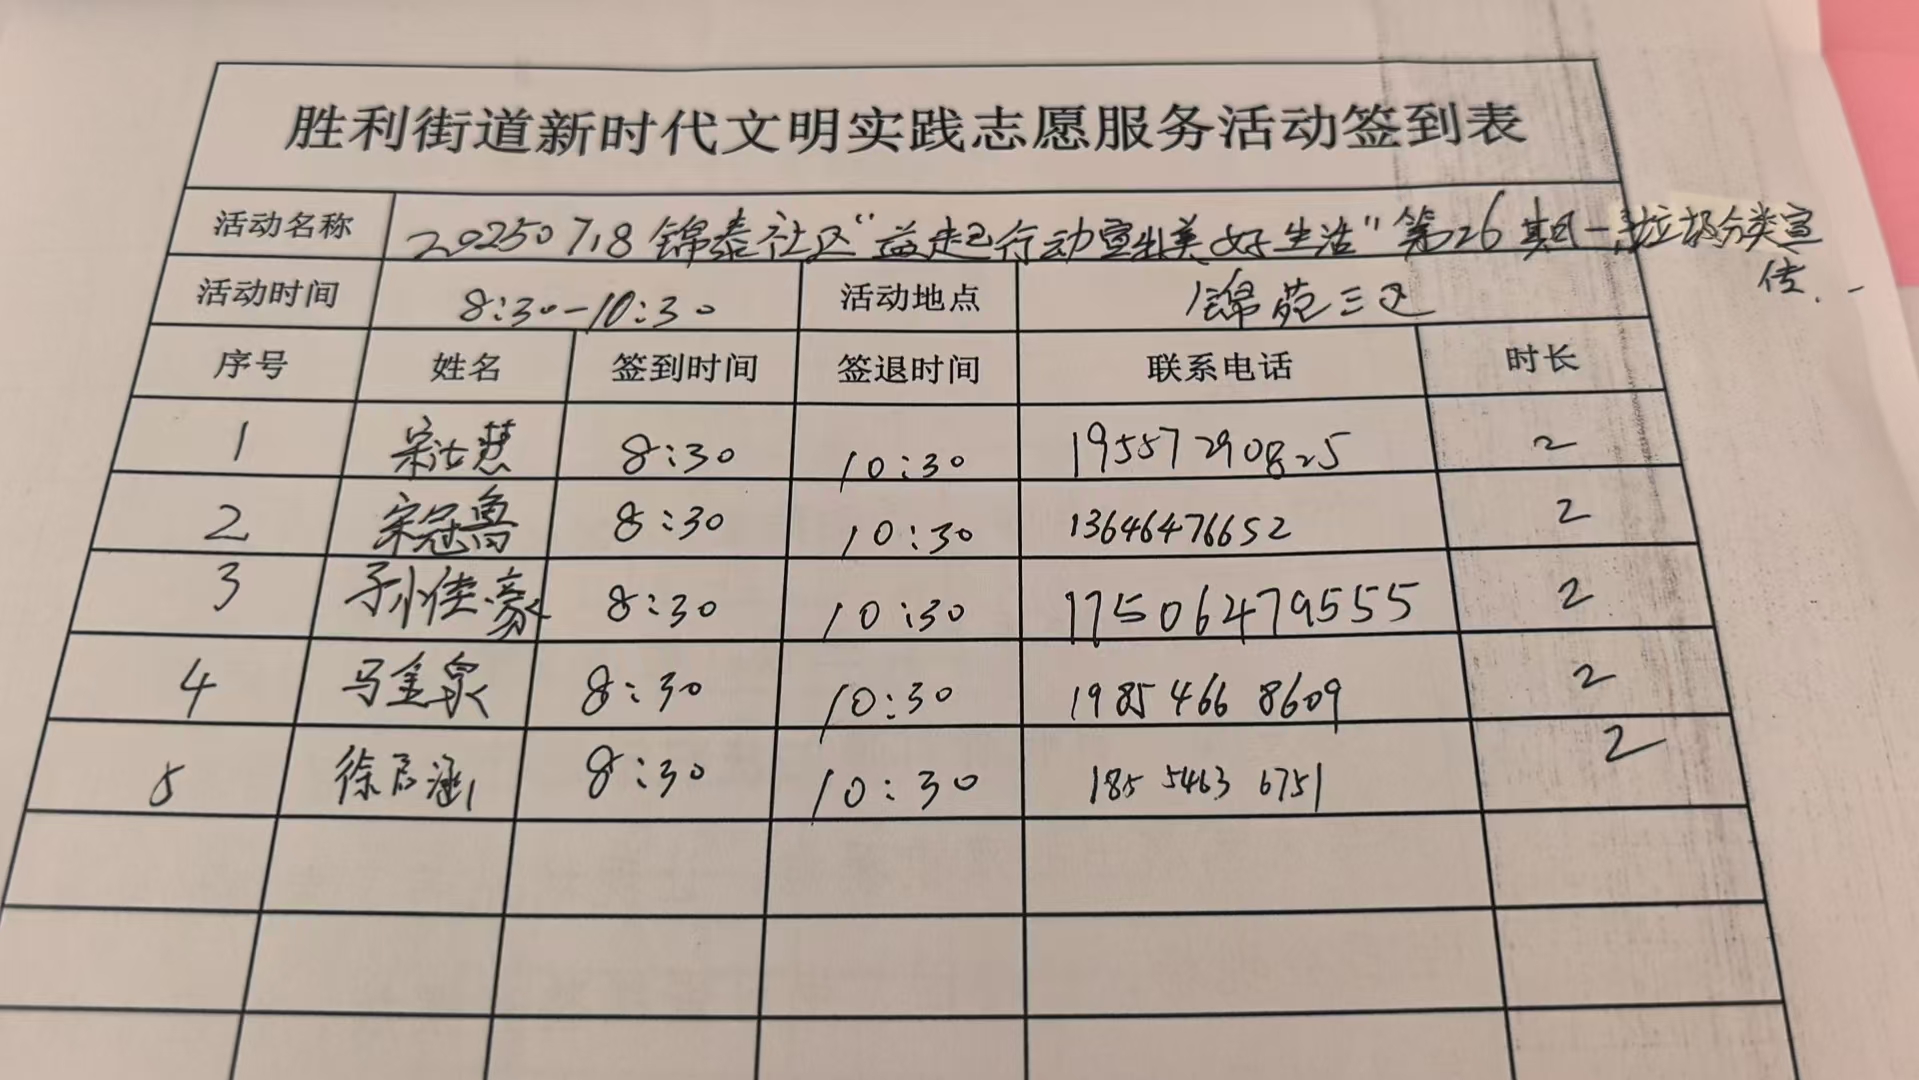 胜利街道新时代文明实践志愿服务活动签到表
活动名称 20250718锦泰社区“益起行动宣出美好生活”第26期—垃圾分类宣传
活动时间 8:30-10:30 活动地点 锦苑三区
序号 姓名 签到时间 签退时间 联系电话 时长
1 宋汝慧 8:30 10:30 19557290825 2
2 宋冠鲁 8:30 10:30 13646476652 2
3 孙佳豪 8:30 10:30 17506479555 2
4 马金泉 8:30 10:30 1985466 8609 2
5 徐启涵 8:30 10:30 185 5463 6751 2